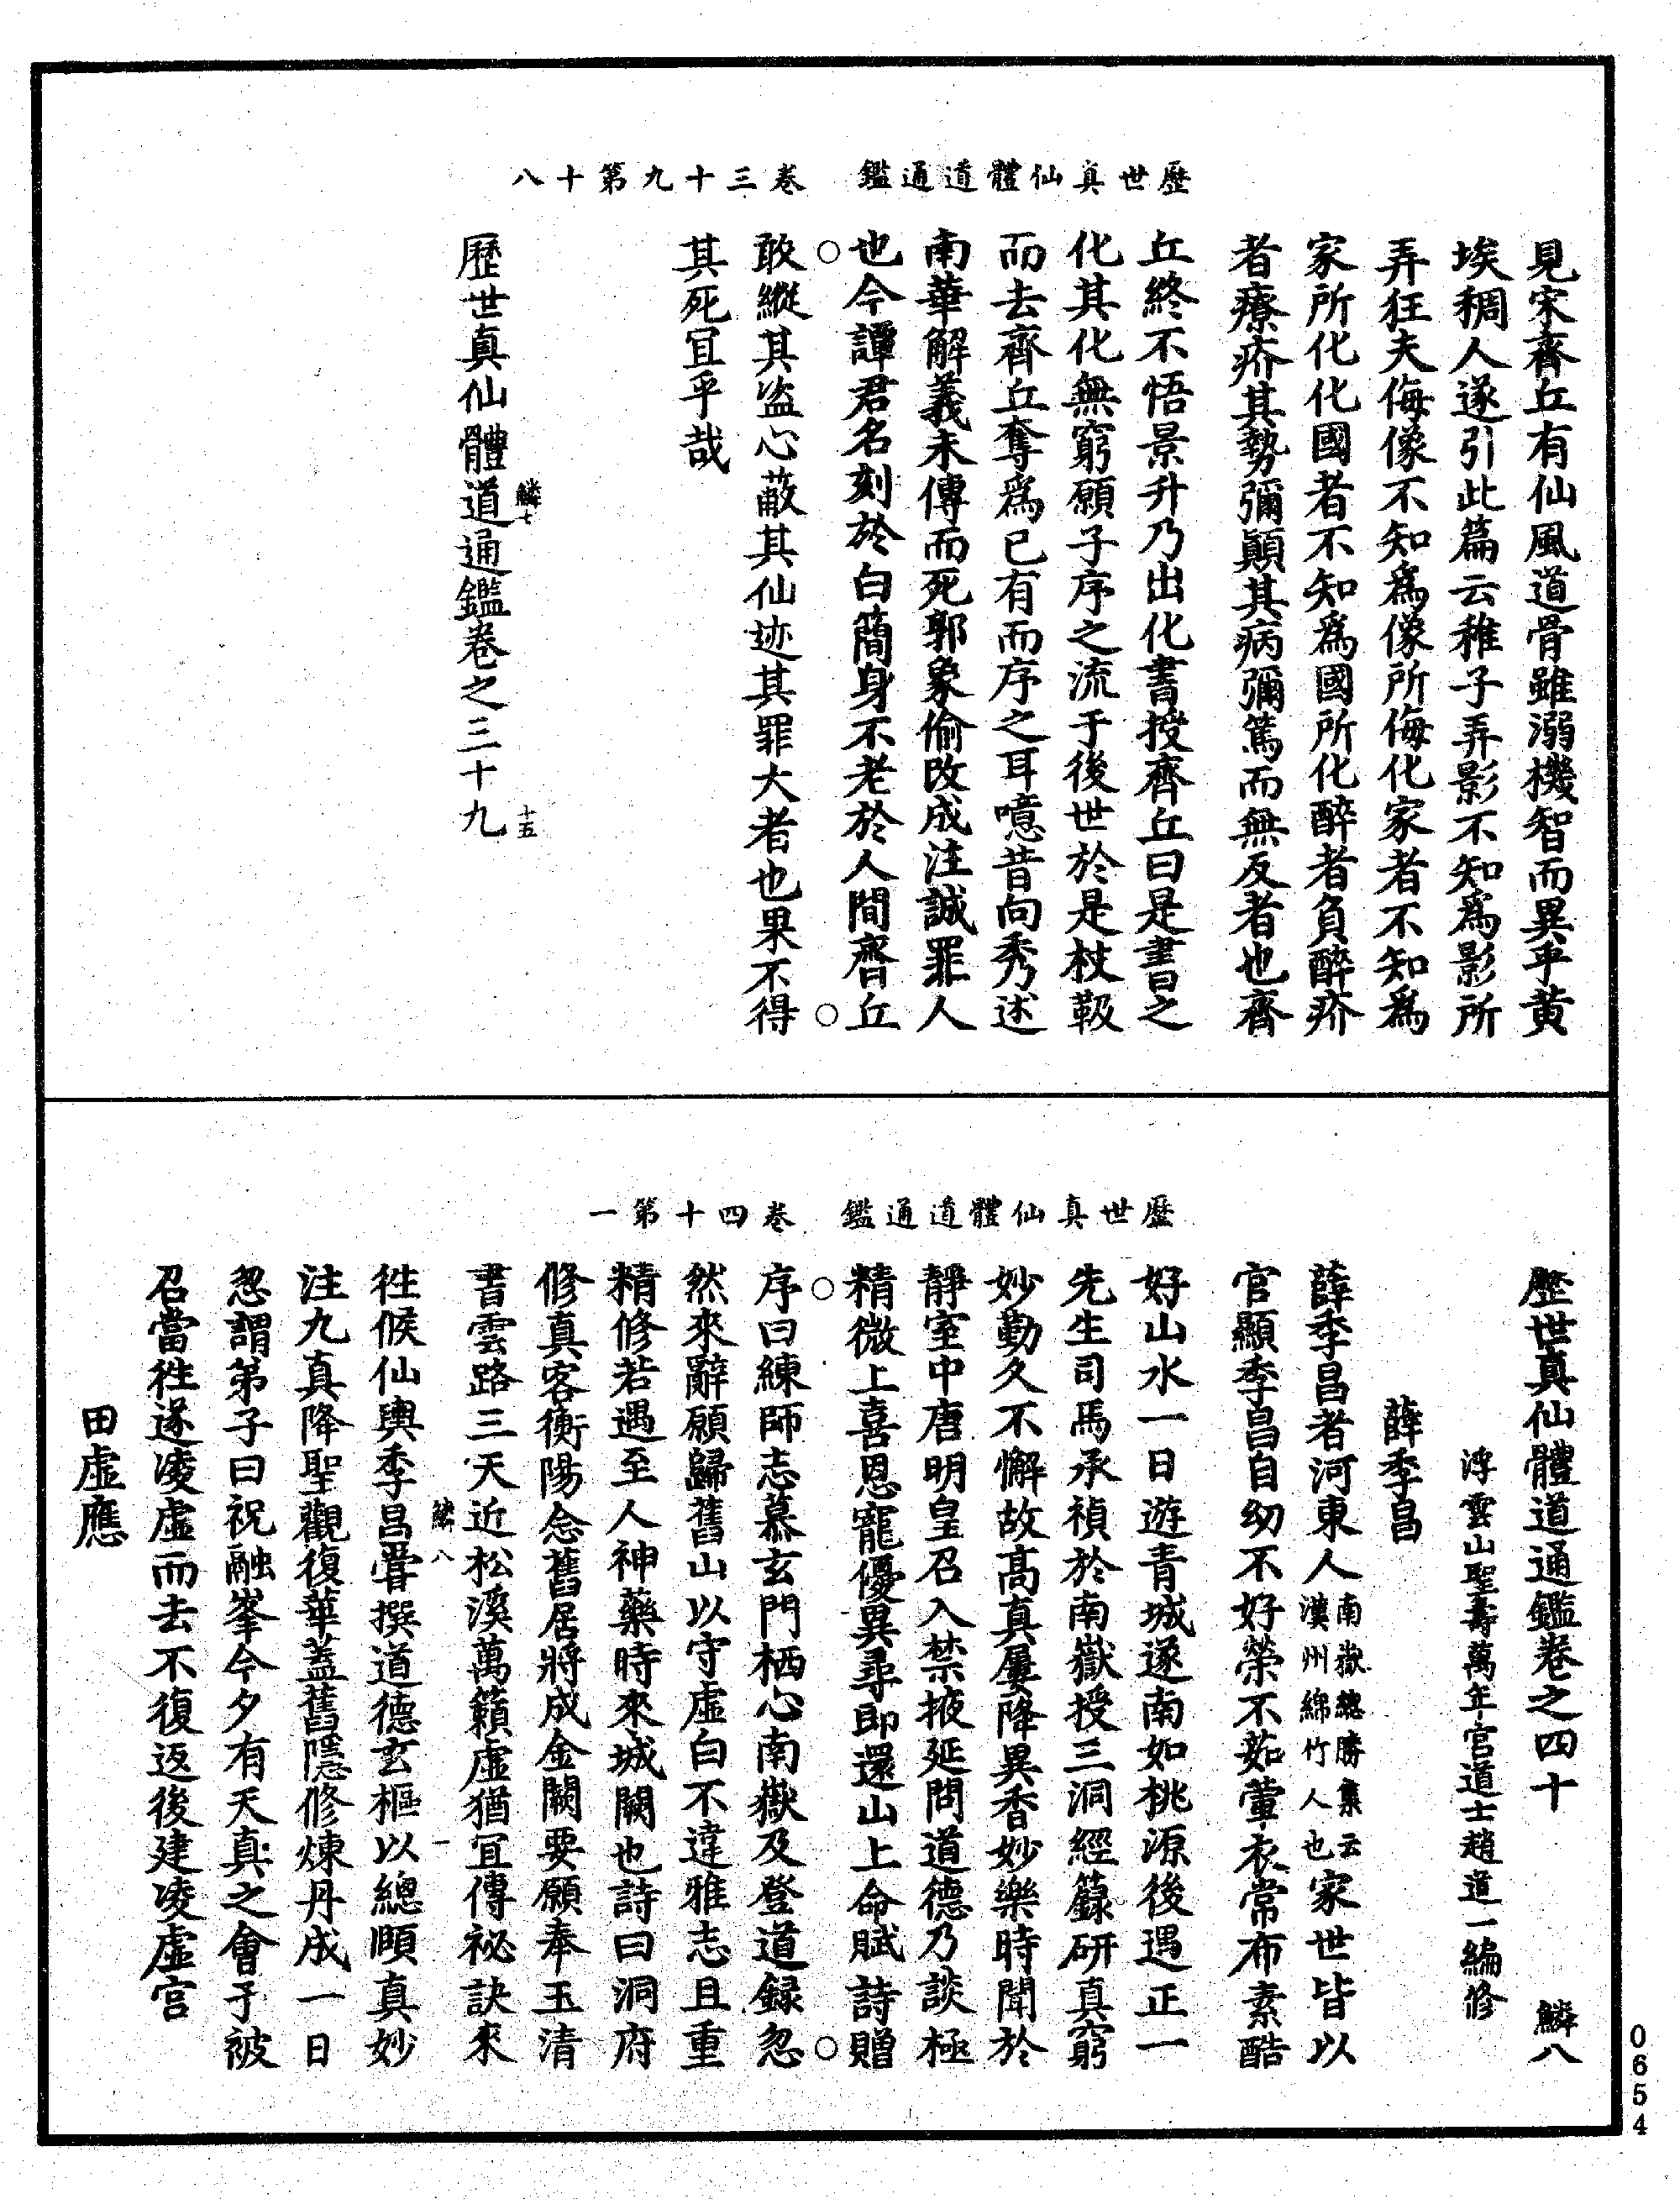 歷世真仙體道通鑑　卷三十九第十八
見宋齊丘有仙風道骨雖溺機智而異乎黄
埃稠人遂引此篇云稚子弄影不知爲影所
弄狂夫侮像不知爲像所侮化家者不知爲
家所化化國者不知爲國所化醉者負醉疥
者療疥其勢彌顛其病彌篤而無反者也齊
丘終不悟景升乃出化書授齊丘曰是書之
化其化無窮願子序之流于後世於是杖靸
而去齊丘奪爲己有而序之耳噫昔向秀述
南華解義未傳而死郭象偷改成注誠罪人
也今譚君名刻於白簡身不老於人間齊丘
敢縱其盗心蔽其仙迹其罪大者也果不得
其死冝乎哉
鱗七
十五
歷世真仙體道通鑑卷之三十九
歷世真仙體道通鑑　卷四十第一
歷世真仙體道通鑑卷之四十　鱗八
浮雲山聖壽萬年宮道士趙道一編修
薛季昌
薛季昌者河東人南嶽總勝集云漢州綿竹人也家世皆以
官顯季昌自幼不好榮不茹葷衣常布素酷
好山水一日遊青城遂南如桃源後遇正一
先生司馬承禎於南嶽授三洞經籙研真窮
妙勤久不懈故髙真屢降異香妙樂時聞於
靜室中唐明皇召入禁掖延問道德乃談極
精微上喜恩寵優異尋即還山上命賦詩贈
序曰練師志慕玄門栖心南嶽及登道録忽
然來辭願歸舊山以守虚白不違雅志且重
精修若遇至人神藥時來城闕也詩曰洞府
修真客衡陽念舊居將成金闕要願奉玉清
書雲路三天近松溪萬籟虚猶冝傳祕訣來
往候仙輿季昌嘗撰道德玄樞以總頥真妙
鱗八
一
注九真降聖觀復華蓋舊隱修煉丹成一日
忽謂弟子曰祝融峯今夕有天真之會予被
召當往遂凌虚而去不復返後建凌虚宮
田虚應
0654